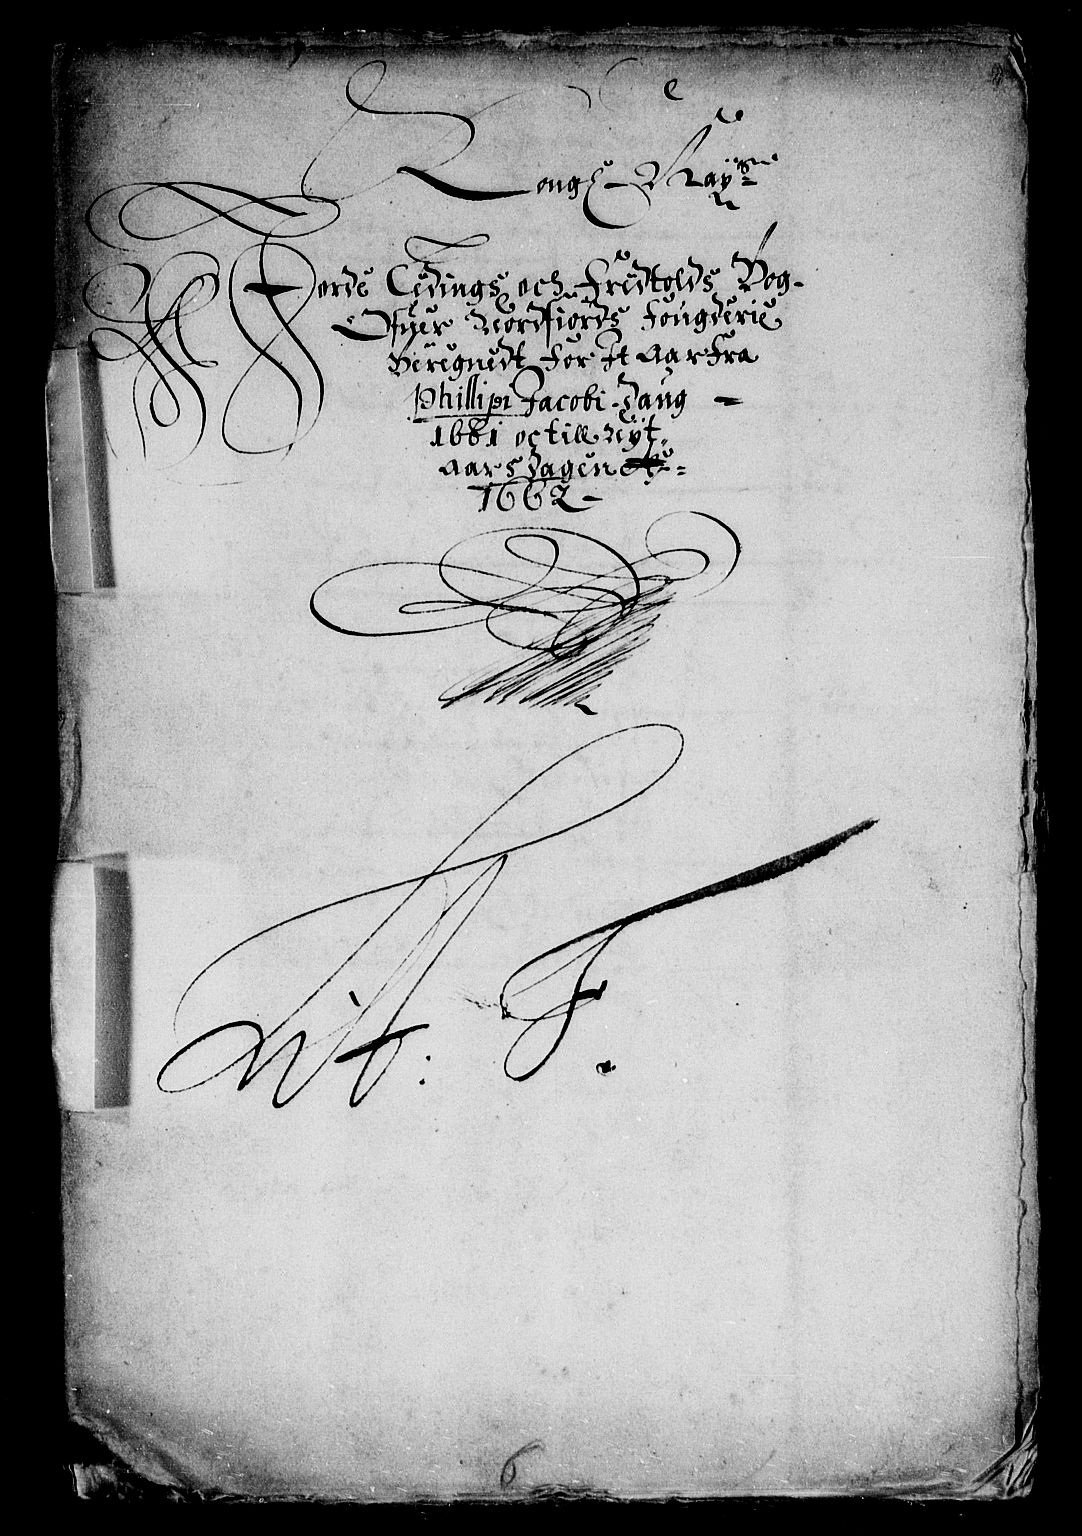 Kongl: May:
Jorde Ledings och Fredtolds Bog
Ofuer Nordfiords Fougderie
Beregnedt for It Aar Fra
Phillipi Jacobi Daug
1661 oc till Nyt
aars dagen
1662
Lit: F.
6